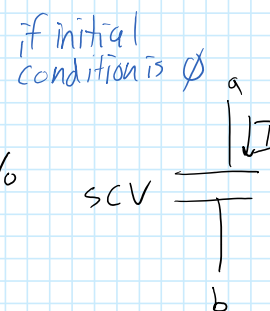 if initial
condition is ϕ
a
I
%
SCV
b